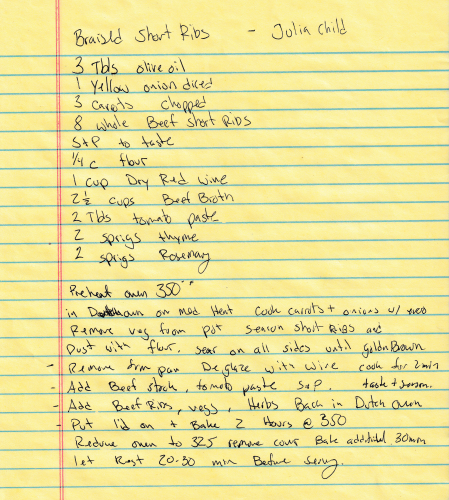 Braised Short Ribs - Julia Child
3 Tbls olive oil
1 Yellow onion diced
3 carots chopped
8 whole Beef short Ribs
S+P to taste
1/4 c flour
1 cup Dry Red wine
2 1/2 cups Beef Broth
2 Tbls tomato paste
2 sprigs thyme
2 sprigs Rosemary
Preheat oven 350°
in Dutch oven on Med Heat Cook carrots + onions w/
Remove veg from pot season short RIBS and
Dust with flour, sear on all sides until goldn Brown
- Remove from pan Deglaze with wine cook for 2 min
- Add Beef stock, tomato paste S+P. taste + season.
- Add Beef Ribs, vegs, Herbs Back in Dutch oven
- Put lid on + Bake 2 Hours @ 350
Reduce oven to 325 remove cover Bake additital 30 min
let Rest 20-30 min Before servg.